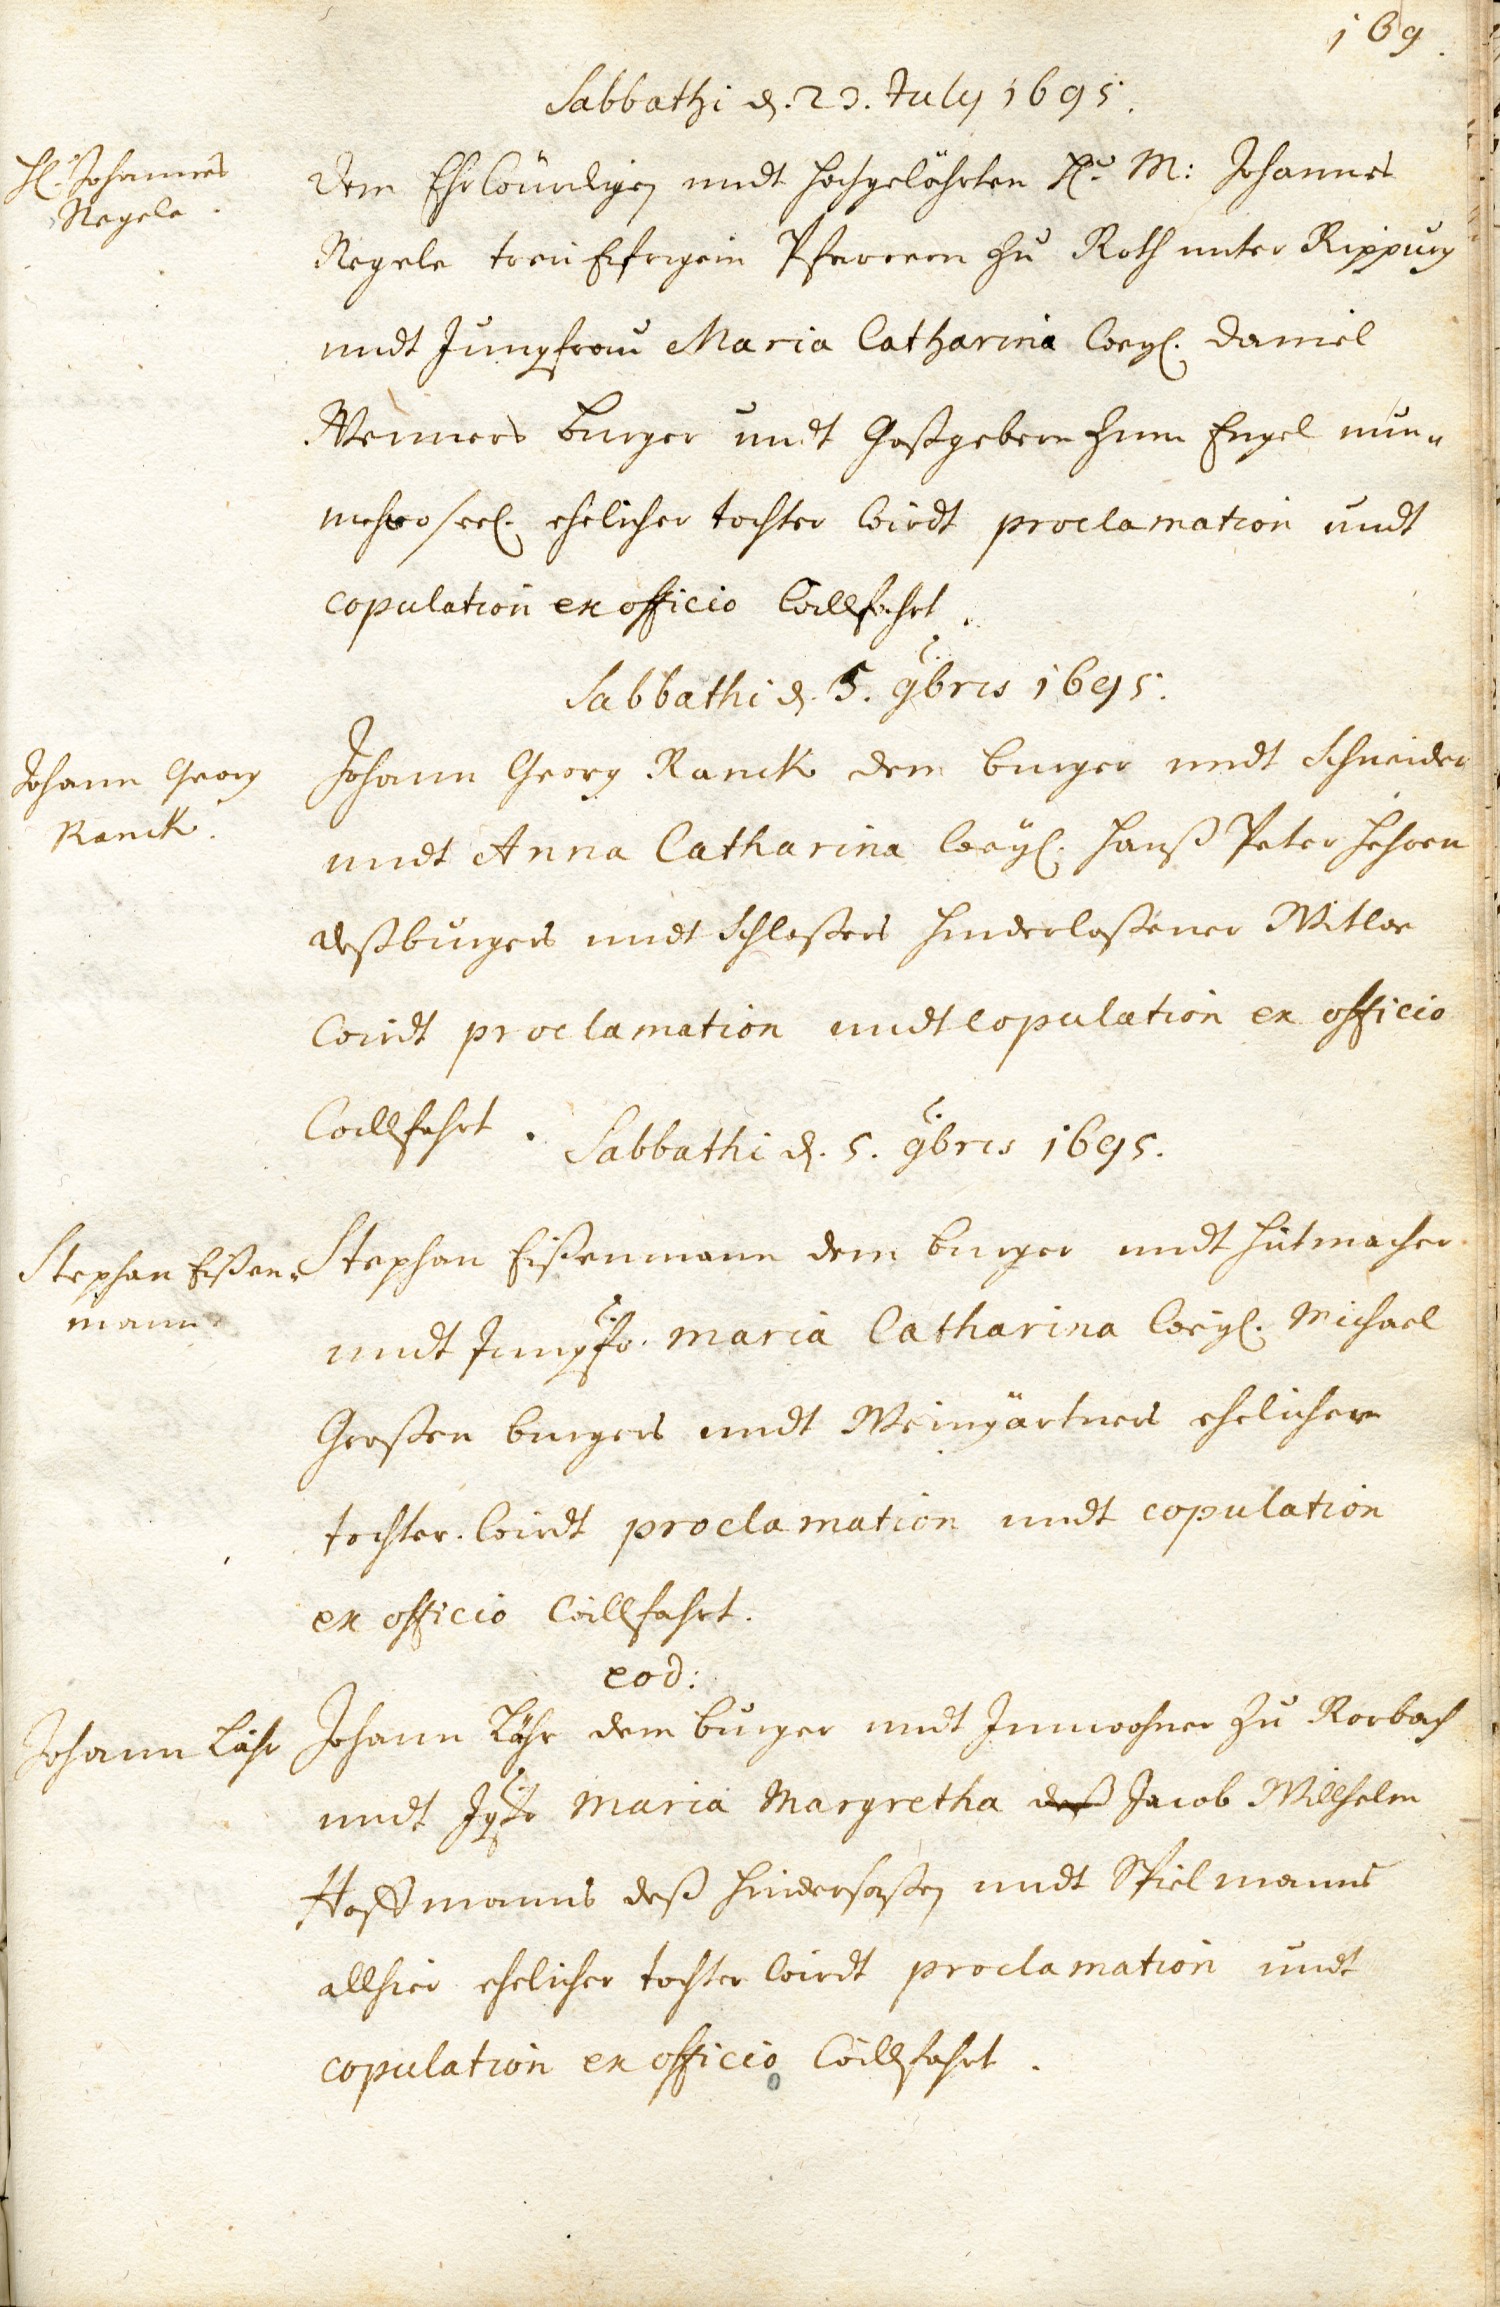 169.
Sabbathi d. 23. July 1695.
H. Johannes
Regele.
Dem Ehrwürdigen undt hochgelährten Hr. M: Johannes
Regele treü Eifrigem Pfarrern zu Roth unter Rippurg
undt Jungfrau Maria Catharina weyl. Daniel
Weimers burger undt Gastgebern zum Engel nun-
mehro seel. ehelicher tochter wirdt proclamation undt
copulation ex officio willfahrt.
Sabbathi d. 5. 9bris 1695.
Johann Georg
Ranck.
Johann Georg Ranck dem burger undt Schneider
undt Anna Catharina weyl. Hanß Peter Hehren
deßburgers undt Schloßers hinderlaßener Witwe
wirdt proclamation undt copulation ex officio
willfahrt.
Sabbathi d. 5. 9bris 1695.
Stephan Eißen-
mann.
Stephan Eißenmann dem burger undt hutmacher
undt Jungfr. Maria Catharina weyl. Michael
Großen burgers undt Weingärtners ehelicher
tochter. wirdt proclamation undt copulation
ex officio willfahrt.
eod:
Johann Lähr
Johann Lähr dem burger undt Innwohner zu Rorbach
undt Jgfr Maria Margretha deß Jacob Willhelm
Hoffmanns deß hindersaßen undt Spielmanns
allhier ehelicher tochter wirdt proclamation undt
copulation ex officio willfahrt.